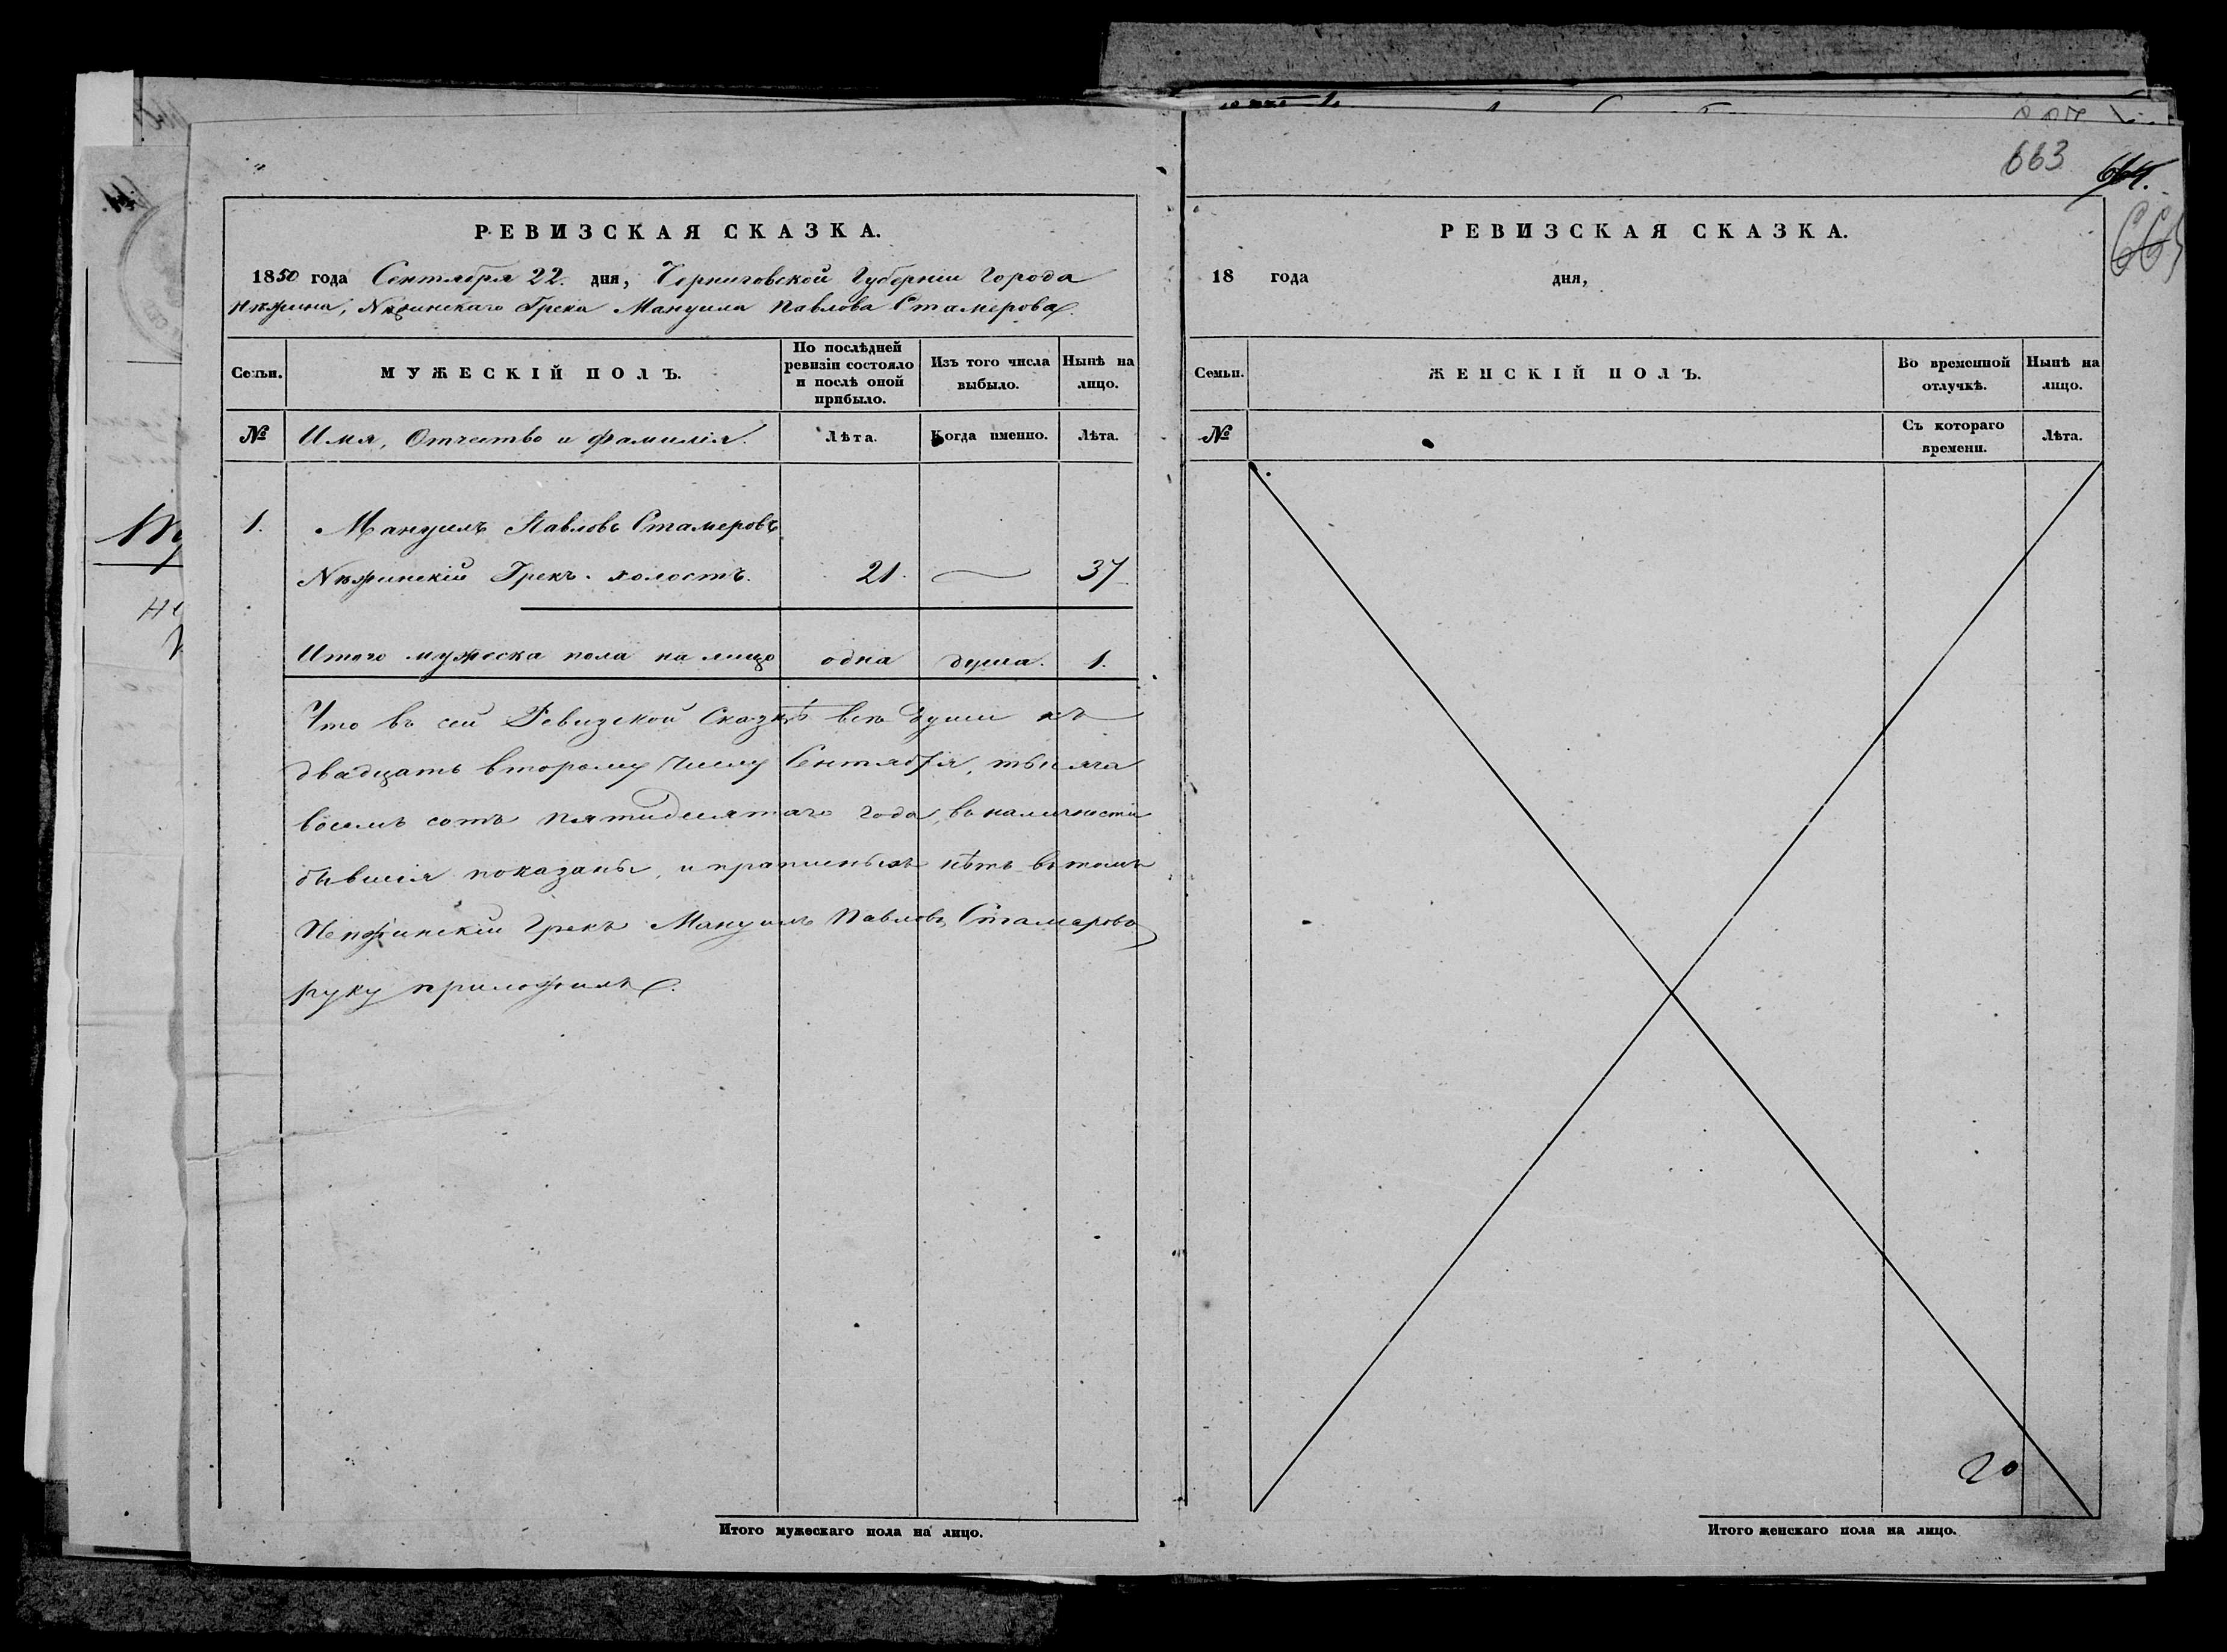 РЕВИЗСКАЯ СКАЗКА.
1850 года Сентября 22. дня, Черниговской Губерніи Города
Нѣжина, Нѣжинскаго Грека Мануила Павлова Стамерова.
Семьи.
МУЖЕСКІЙ ПОЛЪ.
По послѣдней
ревизіи состояло
и послѣ оной
прибыло.
Изъ того числа
выбыло.
Нынѣ на
лицо.
№
Имя, Отчество и фамилія.
Лѣта.
Когда именно.
Лѣта.
1. Мануилъ Павловъ Стамеровъ
Нѣжинскій Грекъ. холостъ. 21. — 37
Итого мужеска пола на лицо одна душа. 1.
Что въ сей Ревизской Сказкѣ всѣ души къ
двадцать второму числу Сентября, тысяча
восемъ сотъ пятидесятаго года, въ наличности
бывшія показаны, и прописныхъ нѣтъ въ томъ
Нежинскій Грекъ Мануилъ Павловъ Стамеровъ
руку приложилъ.
Итого мужескаго пола на лицо.
663
664.
665
РЕВИЗСКАЯ СКАЗКА.
18 года дня,
Семьи.
ЖЕНСКІЙ ПОЛЪ.
Во временной
отлучкѣ.
Нынѣ на
лицо.
№
Съ котораго
времени.
Лѣта.
20
Итого женскаго пола на лицо.